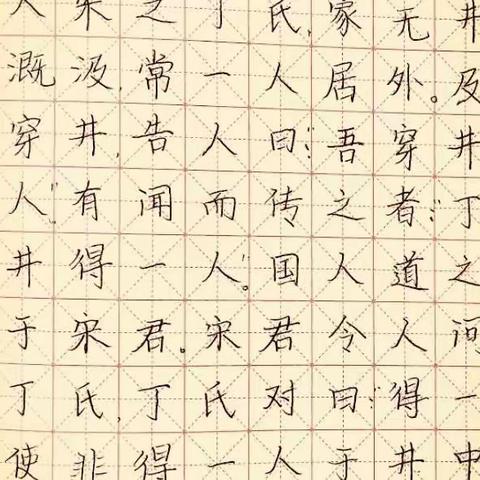 人宋之丁氏,家无井
溉汲,常一人居外。及
穿井,告人曰:“吾穿井
人”。有闻而传之者:“丁
井得一人”。国人道之
于宋君。宋君令人问
丁氏,丁氏对曰:“得一
使非得一人于井中